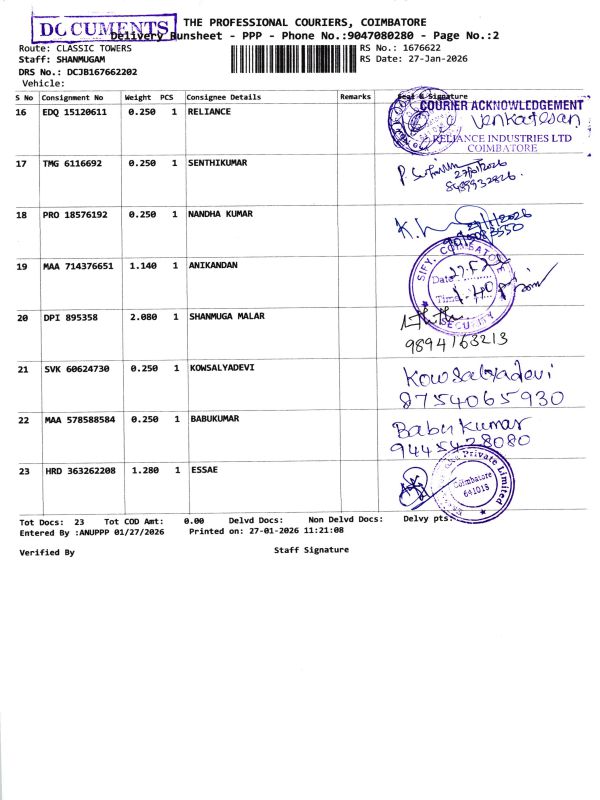 DOCUMENTS
THE PROFESSIONAL COURIERS, COIMBATORE
Delivery Runsheet - PPP - Phone No.:9047080280 - Page No.:2
Route: CLASSIC TOWERS
RS No.: 1676622
Staff: SHANMUGAM
RS Date: 27-Jan-2026
DRS No.: DCJB167662202
Vehicle:
S No Consignment No Weight PCS Consignee Details Remarks Seal & Signature
16 EDQ 15120611 0.250 1 RELIANCE
COURIER ACKNOWLEDGEMENT
Venkatesan
RELIANCE INDUSTRIES LTD
COIMBATORE
17 TMG 6116692 0.250 1 SENTHIKUMAR
27/01/2026
8489932826.
18 PRO 18576192 0.250 1 NANDHA KUMAR
19 MAA 714376651 1.140 1 ANIKANDAN
SIFY, COIMBATORE
Date
Time
SECURITY
20 DPI 895358 2.080 1 SHANMUGA MALAR
9894763213
21 SVK 60624730 0.250 1 KOWSALYADEVI
Kowsalyadevi
8754065930
22 MAA 578588584 0.250 1 BABUKUMAR
Babu Kumar
9445428080
23 HRD 363262208 1.280 1 ESSAE
Private Limited
Coimbatore
641015
Tot Docs: 23 Tot COD Amt: 0.00 Delvd Docs: Non Delvd Docs: Delvy pts:
Entered By :ANUPPP 01/27/2026 Printed on: 27-01-2026 11:21:08
Verified By Staff Signature